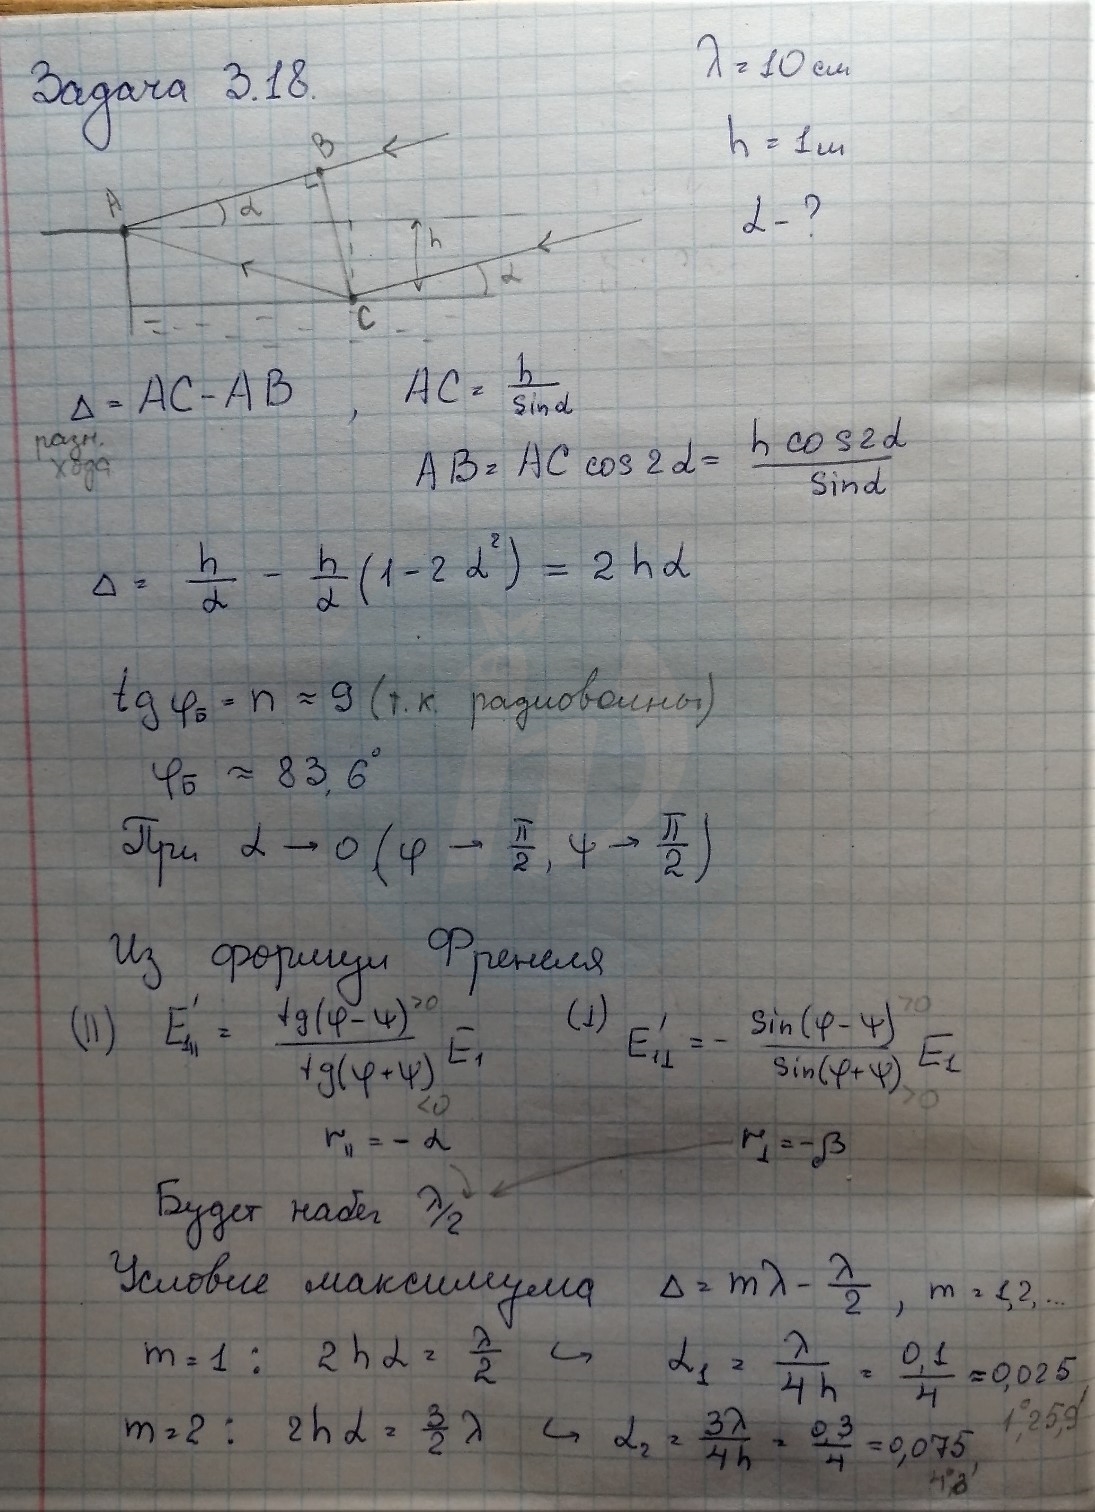 Задача 3.18.
λ = 10 см
h = 1 м
α - ?
A
B
α
h
α
C
Δ = AC - AB , AC = h/sinα
разн. хода
AB = AC cos2α = h cos2α/sinα
Δ = h/α - h/α (1 - 2α²) = 2hα
tg φ_Б = n ≈ 9 (т.к. радиоволны)
φ_Б ≈ 83,6°
При α → 0 (φ → π/2, ψ → π/2)
Из формул Френеля
(II) E'₁∥ = tg(φ-ψ)/tg(φ+ψ) E₁ (⊥) E'₁⊥ = - sin(φ-ψ)/sin(φ+ψ) E₁
>0 >0
<0 >0
r∥ = - α r⊥ = - β
Будет набег λ/2
Условие максимума Δ = mλ - λ/2 , m = 1,2,...
m = 1 : 2hα = λ/2 ↪ α₁ = λ/4h = 0,1/4 = 0,025,
m = 2 : 2hα = 3/2 λ ↪ α₂ = 3λ/4h = 0,3/4 = 0,075,